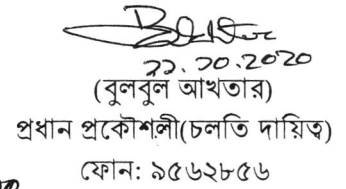 22.10.2020
(বুলবুল আখতার)
প্রধান প্রকৌশলী(চলতি দায়িত্ব)
ফোন: ৯৫৬২৮৫৬